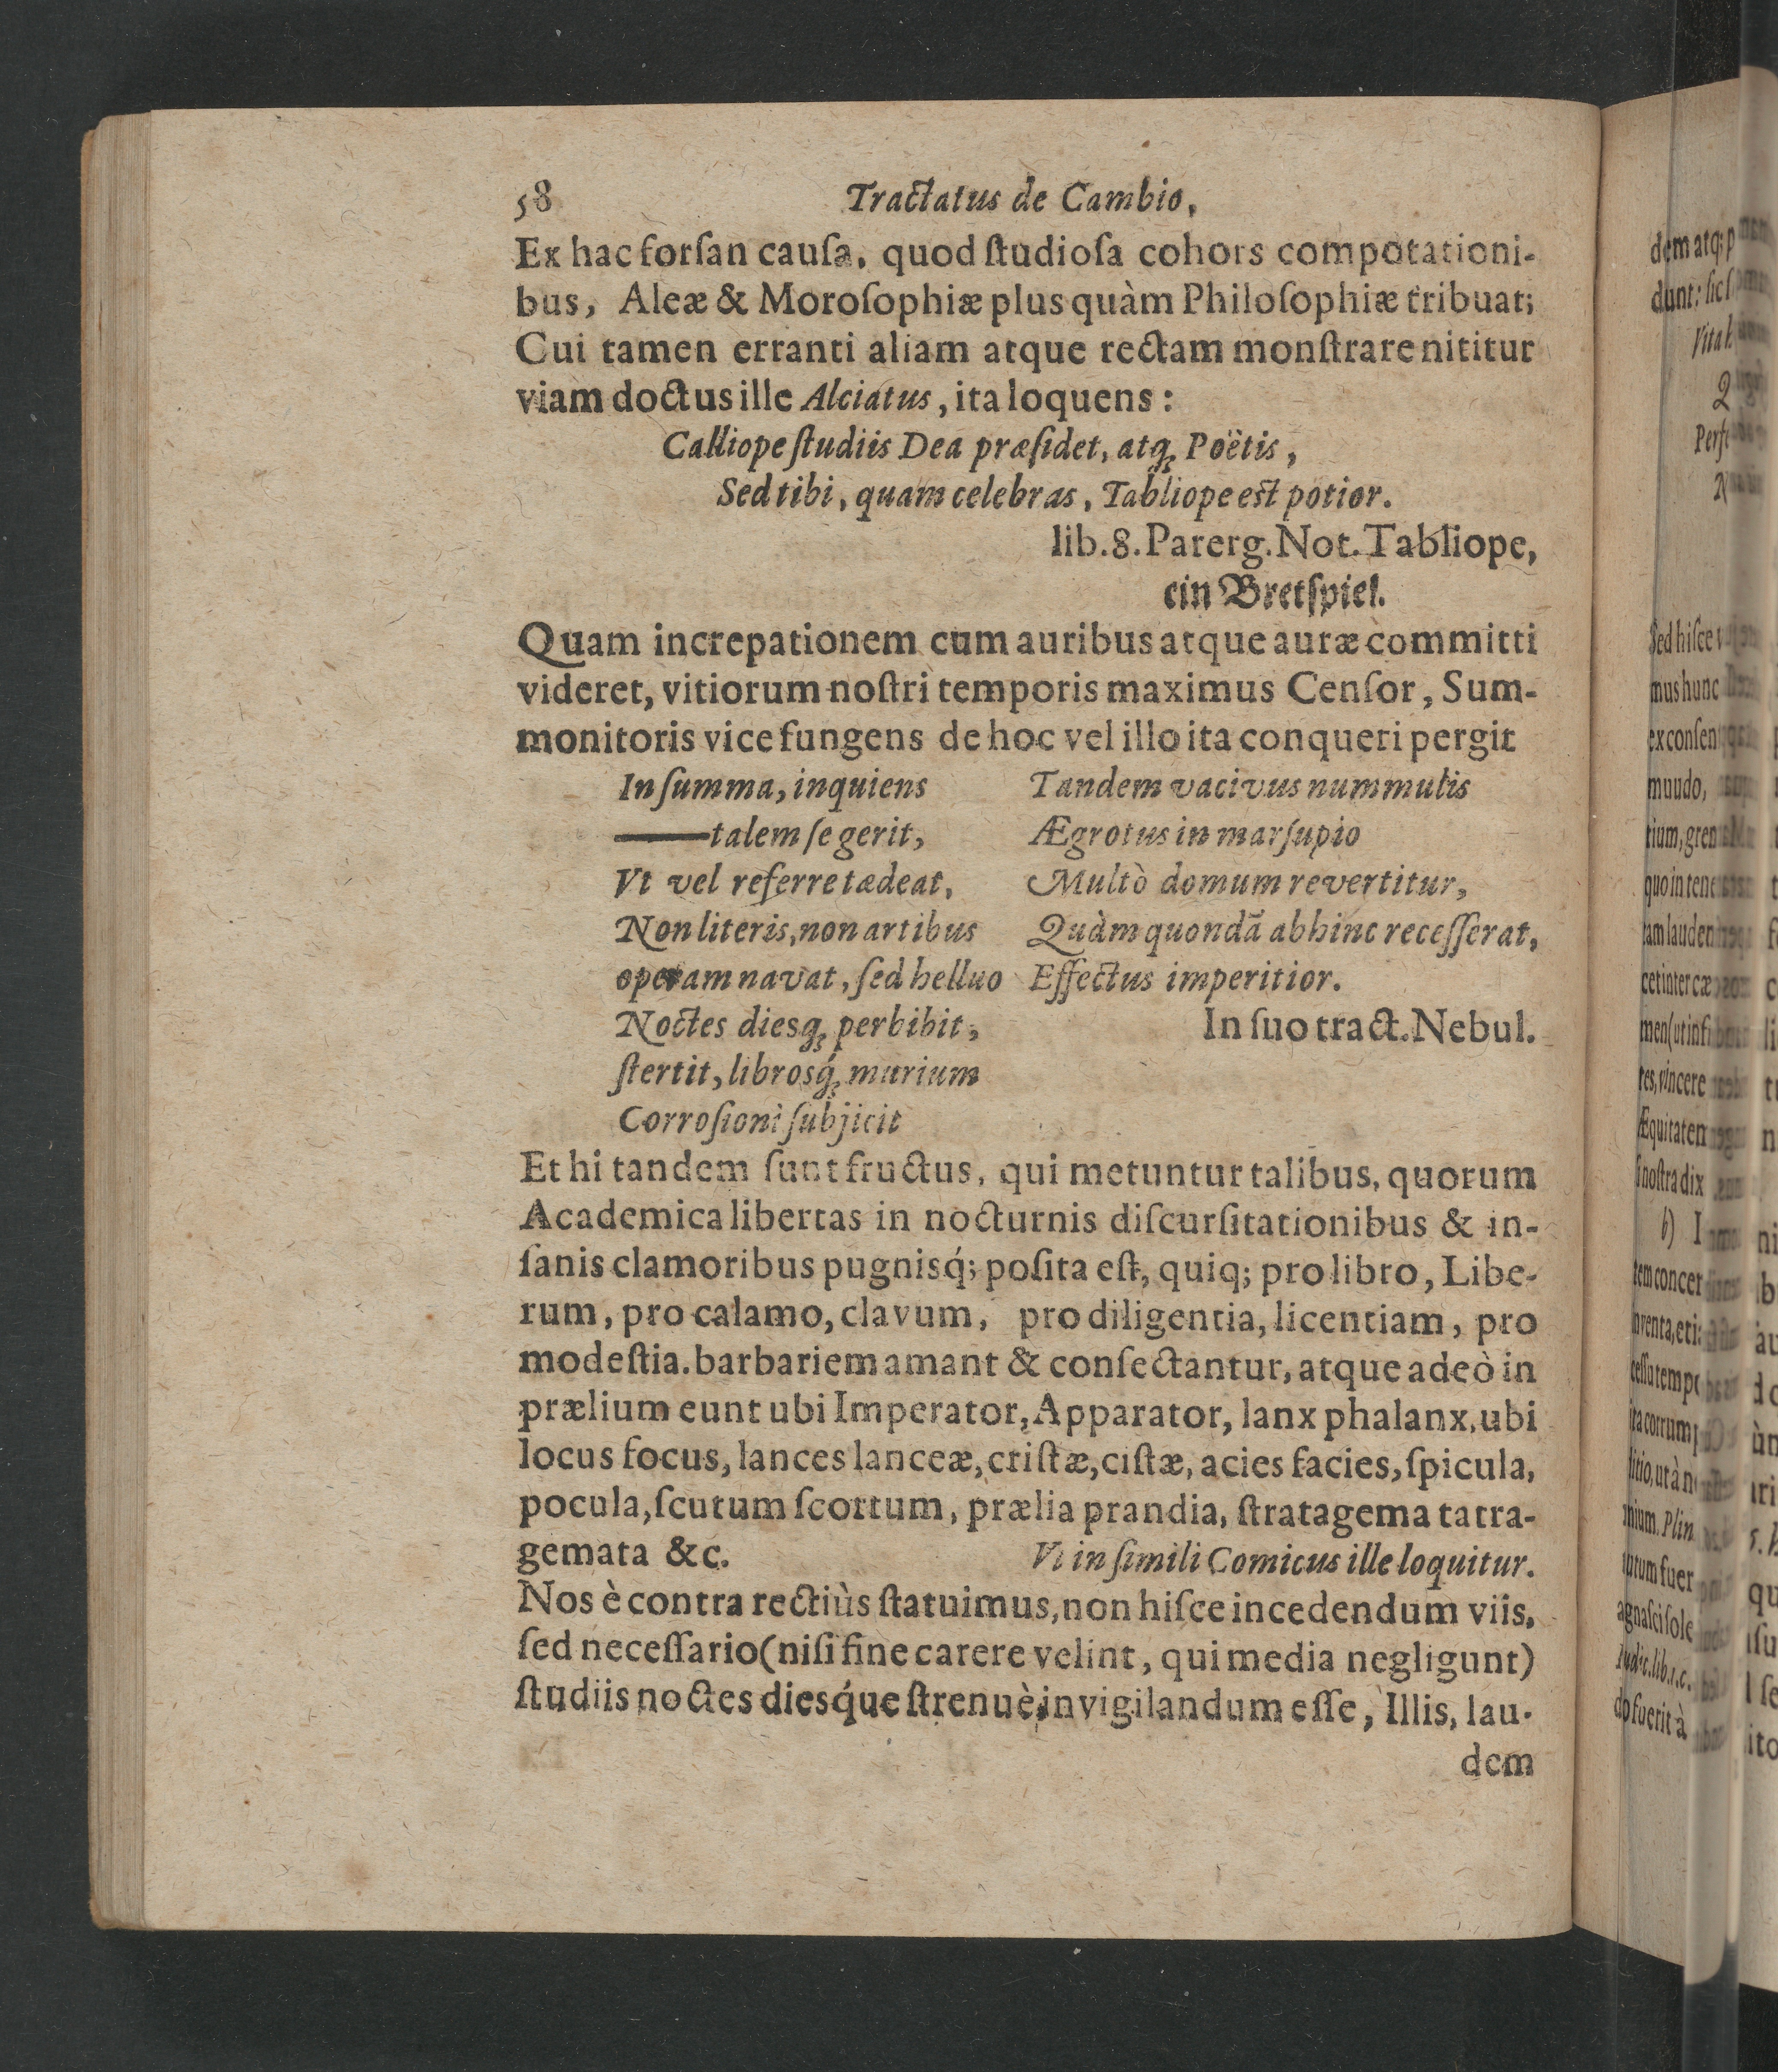 58 Tractatus de Cambio,
Ex hac forſan cauſa, quod ſtudioſa cohors compotationi-
bus, Aleæ & Moroſophiæ plus quàm Philoſophiæ tribuat;
Cui tamen erranti aliam atque rectam monſtrare nititur
viam doctus ille Alciatus, ita loquens:
Calliope ſtudiis Dea præſidet, atq; Poëtis,
Sed tibi, quam celebras, Tabliope est potior.
lib. 8. Parerg. Not. Tabliope,
ein Bretſpiel.
Quam increpationem cum auribus atque auræ committi
videret, vitiorum noſtri temporis maximus Cenſor, Sum-
monitoris vice fungens de hoc vel illo ita conqueri pergit
In ſumma, inquiens
—talem ſe gerit,
Vt vel referre tædeat,
Non literis, non artibus
operam navat, ſed helluo
Noctes diesq; perbibit,
ſtertit, librosq́; murium
Corroſioni ſubjicit
Tandem vacivus nummulis
Ægrotus in marſupio
Multò domum revertitur,
Quàm quondã abhinc receſſerat,
Effectus imperitior.
In ſuo tract. Nebul.
Et hi tandem ſunt fructus, qui metuntur talibus, quorum
Academica libertas in nocturnis diſcurſitationibus & in-
ſanis clamoribus pugnisq́; poſita eſt, quiq; pro libro, Libe-
rum, pro calamo, clavum, pro diligentia, licentiam, pro
modeſtia. barbariem amant & conſectantur, atque adeò in
prælium eunt ubi Imperator, Apparator, lanx phalanx, ubi
locus focus, lances lanceæ, criſtæ, ciſtæ, acies facies, ſpicula,
pocula, ſcutum ſcortum, prælia prandia, ſtratagema tatra-
gemata &c. Vt in ſimili Comicus ille loquitur.
Nos è contra rectiùs ſtatuimus, non hiſce incedendum viis,
ſed neceſſario (niſi fine carere velint, qui media negligunt)
ſtudiis noctes diesq́ue ſtrenuè invigilandum eſſe, Illis, lau-
dem
dem atq; p
dunt: ſic ſ
Vital
Q
Perfe
N
Sed hiſce
mus hunc
ex conſen
muudo,
tium, gren
quo in tene
tam lauden
cet inter cæ
men (ut inf
tes, vincere
Æquitaten
ſi noſtra dix
b) I
tem concer
inventa, eti
ceſſu temp
ita corrum
ſitio, ut à n
mium. Plin
tutum fuer
agnaſci ſole
Iudic. lib. 1. c.
do fuerit à